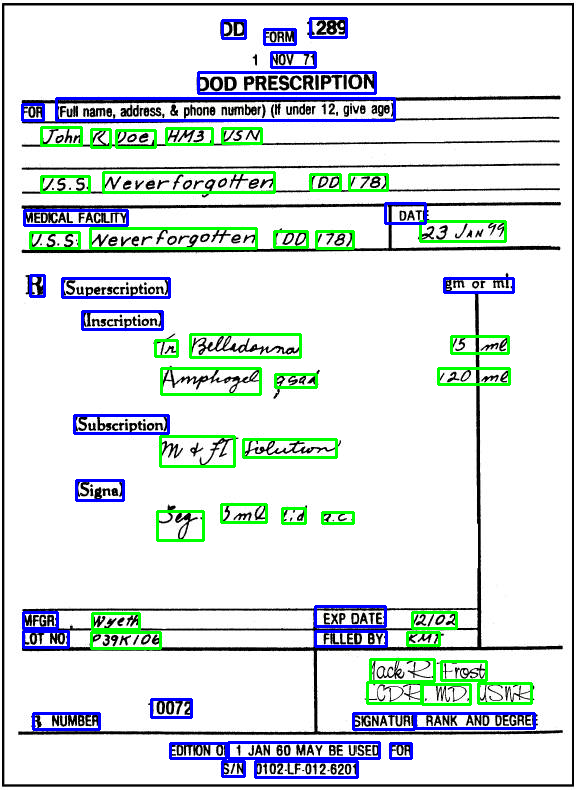 DD FORM 1289
1 NOV 71
DOD PRESCRIPTION
FOR (Full name, address, & phone number) (If under 12, give age)
John R. Doe, HM3, USN
U.S.S. Neverforgotten (DD 178)
MEDICAL FACILITY DATE
U.S.S. Neverforgotten (DD 178) 23 JAN 99
℞ (Superscription) gm or ml.
(Inscription)
Tr Belladonna 15 ml
Amphogel qsad 120 ml
(Subscription)
M & Ft Solution
(Signa)
Sig: 5 ml tid a.c.
MFGR: Wyeth EXP DATE: 12/02
LOT NO: P39K106 FILLED BY: KMT
Jack R. Frost
LCDR, MD, USNR
10072
R NUMBER SIGNATURE RANK AND DEGREE
EDITION OF 1 JAN 60 MAY BE USED FOR
S/N 0102-LF-012-6201